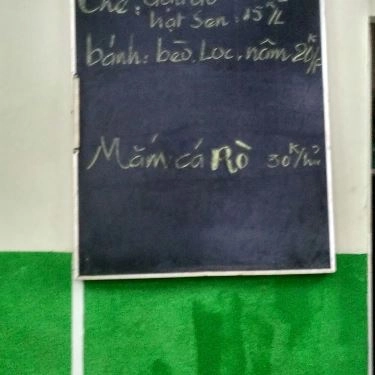 Chè:
hạt sen: 15K/L
bánh: bèo, Lọc, nậm 20K/P
Mắm cá Rò 30K/hủ